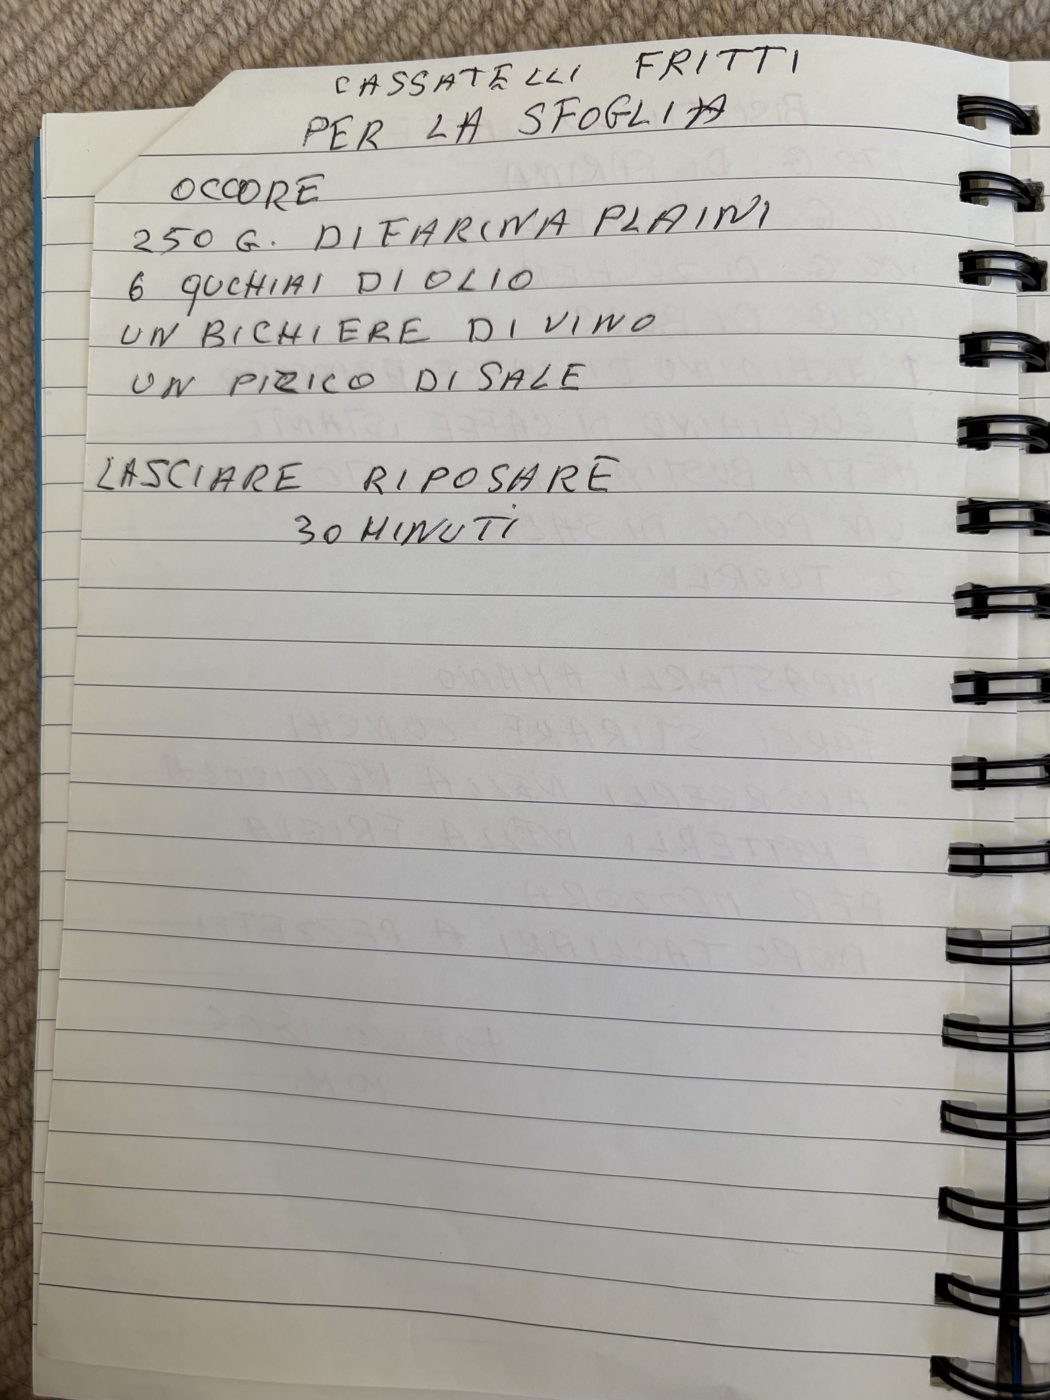 CASSATELLI FRITTI
PER LA SFOGLIA
OCCORE
250 G. DI FARINA PLAINI
6 QUCHIAI DI OLIO
UN BICHIERE DI VINO
UN PIZICO DI SALE
LASCIARE RIPOSARE
30 MINUTI